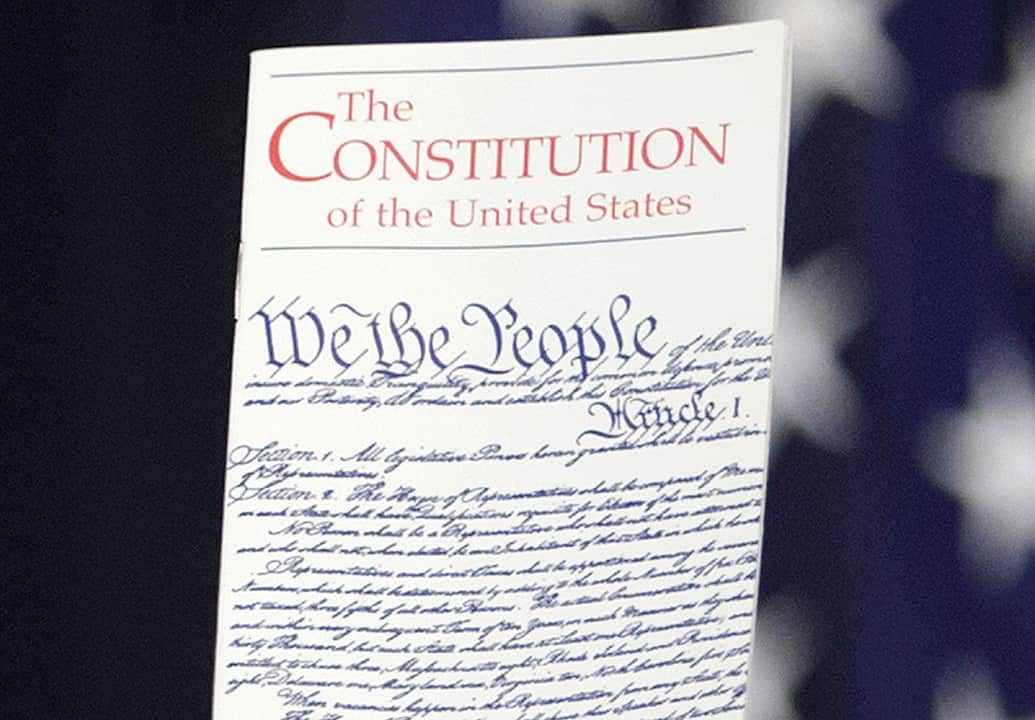 The
CONSTITUTION
of the United States
We the People of the Uni
insure domestic Tranquility, provide for the common defence, promo
and our Posterity, do ordain and establish this Constitution for the U
Article. I.
Section. 1. All legislative Powers herein granted shall be vested in
of Representatives.
Section. 2. The House of Representatives shall be composed of Mem
in each State shall have Qualifications requisite for Electors of the most numerous
No Person shall be a Representative who shall not have attained t
and who shall not, when elected, be an Inhabitant of that State in which
Representatives and direct Taxes shall be apportioned among the several
Numbers, which shall be determined by adding to the whole Number of free
not taxed, three fifths of all other Persons. The actual Enumeration shall be
and within every subsequent Term of ten Years, in such Manner as they shall
thirty Thousand, but each State shall have at Least one Representative; and
entitled to chuse three, Massachusetts eight, Rhode Island and Providence
eight, Delaware one, Maryland six, Virginia ten, North Carolina five,
When vacancies happen in the Representation from any State, the
The shall chuse their Speaker and other